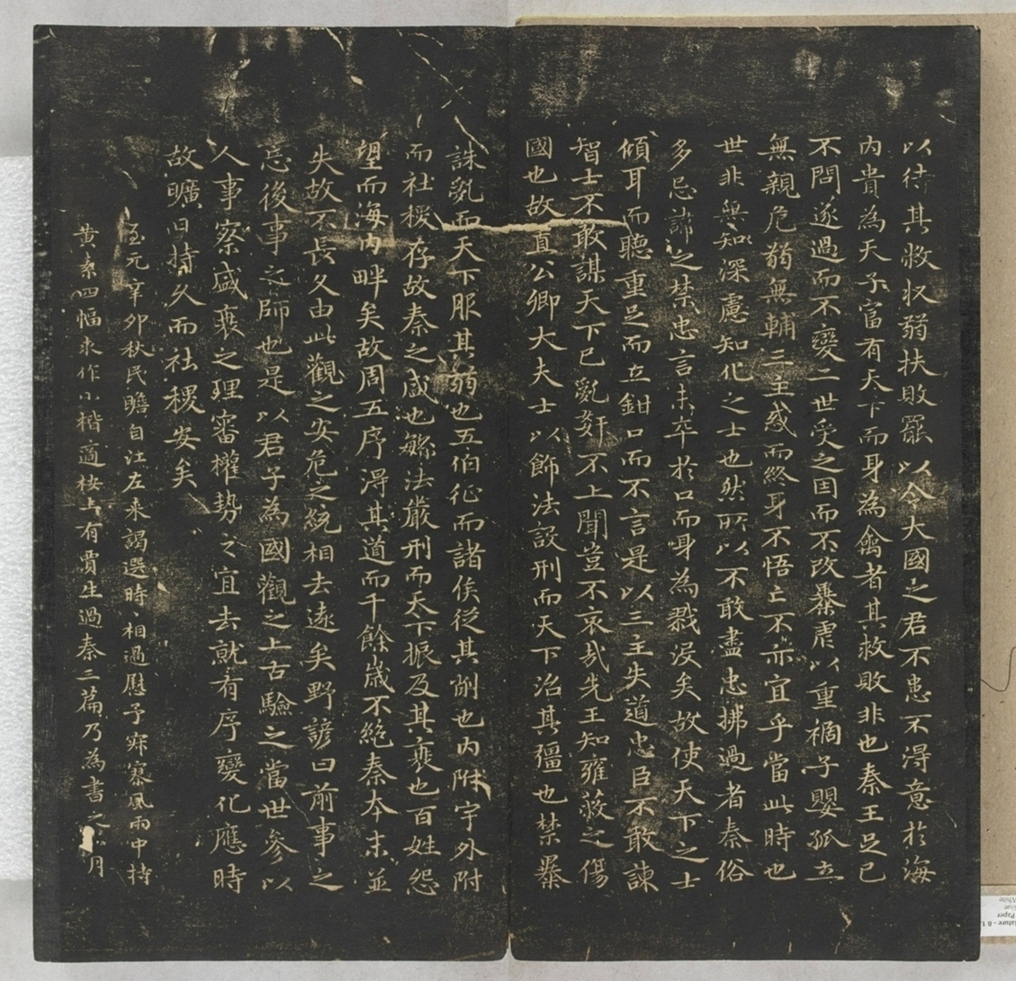 以待其敝収弱扶敗罷以令大國之君不患不淂意扵海
内貴為天子富有天下而身為禽者其救敗非也秦王足已
不問遂過而不變二世受之因而不改暴虐以重禍子嬰孤立
無親危弱無輔三主惑而終身不悟亡不亦宜乎當此時也
世非無知深慮知化之士也然所以不敢盡忠拂過者秦俗
多忌諱之禁忠言未卒扵口而身為戮没矣故使天下之士
傾耳而聽重足而立鉗口而不言是以三主失道忠臣不敢諫
智士不敢謀天下已亂奸不上聞豈不哀哉先王知雍蔽之傷
國也故置公卿大夫士以飾法設刑而天下治其彊也禁暴
誅亂而天下服其弱也五伯征而諸侯從其削也内附宇外附
而社稷存故秦之盛也繁法嚴刑而天下振及其衰也百姓怨
望而海内畔矣故周五序淂其道而千餘歳不絶秦本末並
失故不長久由此觀之安危之統相去遠矣野諺曰前事之
忘後事之師也是以君子為國觀之上古驗之當世參以
人事察盛衰之理審權勢之宜去就有序變化應時
故曠日持久而社稷安矣
至元辛卯秋民瞻自江左来謁選時相過慰予寂寥風雨中持
黄素四幅求作小楷適桉上有賈生過秦三篇乃為書之 月